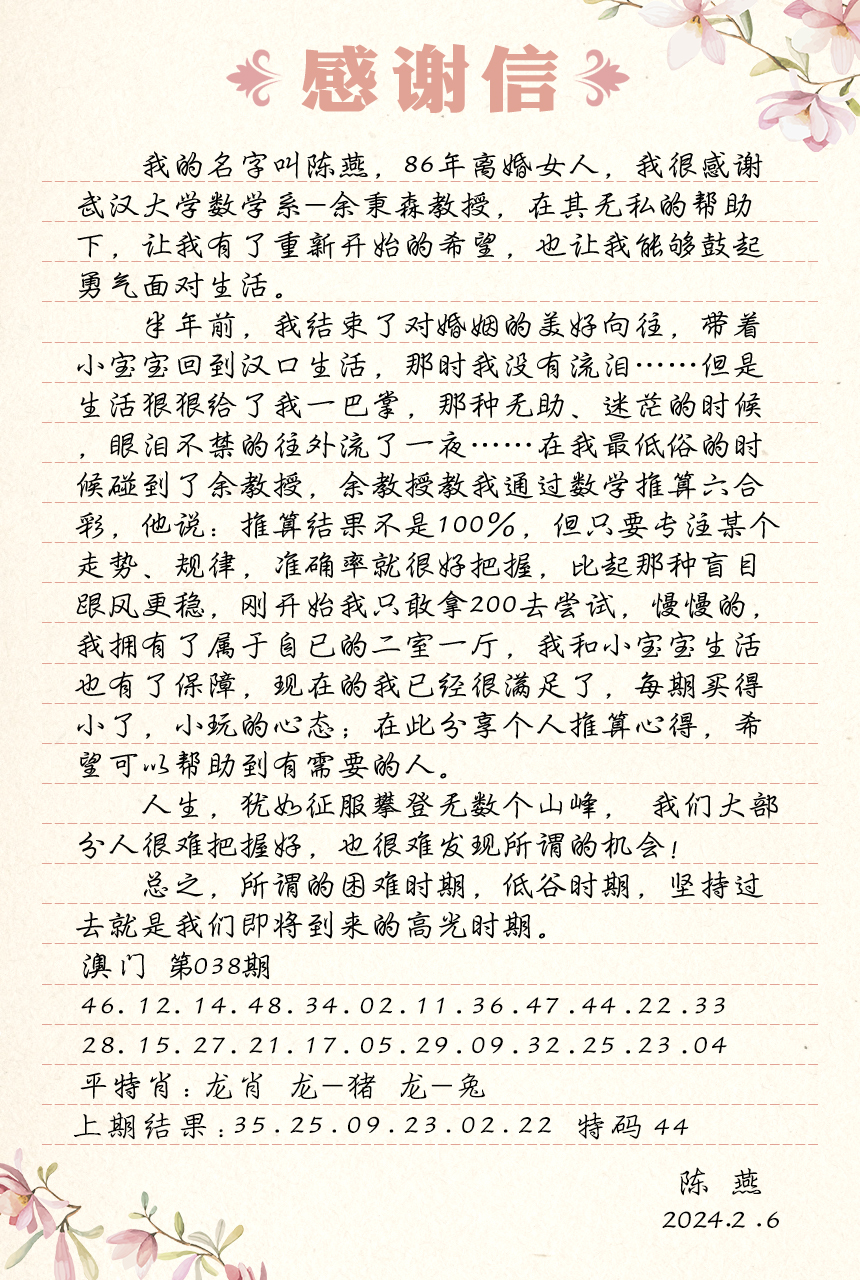 感谢信
我的名字叫陈燕，86年离婚女人，我很感谢
武汉大学数学系—余秉森教授，在其无私的帮助
下，让我有了重新开始的希望，也让我能够鼓起
勇气面对生活。
半年前，我结束了对婚姻的美好向往，带着
小宝宝回到汉口生活，那时我没有流泪……但是
生活狠狠给了我一巴掌，那种无助、迷茫的时候
，眼泪不禁的往外流了一夜……在我最低俗的时
候碰到了余教授，余教授教我通过数学推算六合
彩，他说：推算结果不是100%，但只要专注某个
走势、规律，准确率就很好把握，比起那种盲目
跟风更稳，刚开始我只敢拿200去尝试，慢慢的，
我拥有了属于自已的二室一厅，我和小宝宝生活
也有了保障，现在的我已经很满足了，每期买得
小了，小玩的心态；在此分享个人推算心得，希
望可以帮助到有需要的人。
人生，犹如征服攀登无数个山峰， 我们大部
分人很难把握好，也很难发现所谓的机会！
总之，所谓的困难时期，低谷时期，坚持过
去就是我们即将到来的高光时期。
澳门 第038期
46.12.14.48.34.02.11.36.47.44.22.33
28.15.27.21.17.05.29.09.32.25.23.04
平特肖：龙肖 龙—猪 龙—兔
上期结果：35.25.09.23.02.22 特码 44
陈 燕
2024.2.6